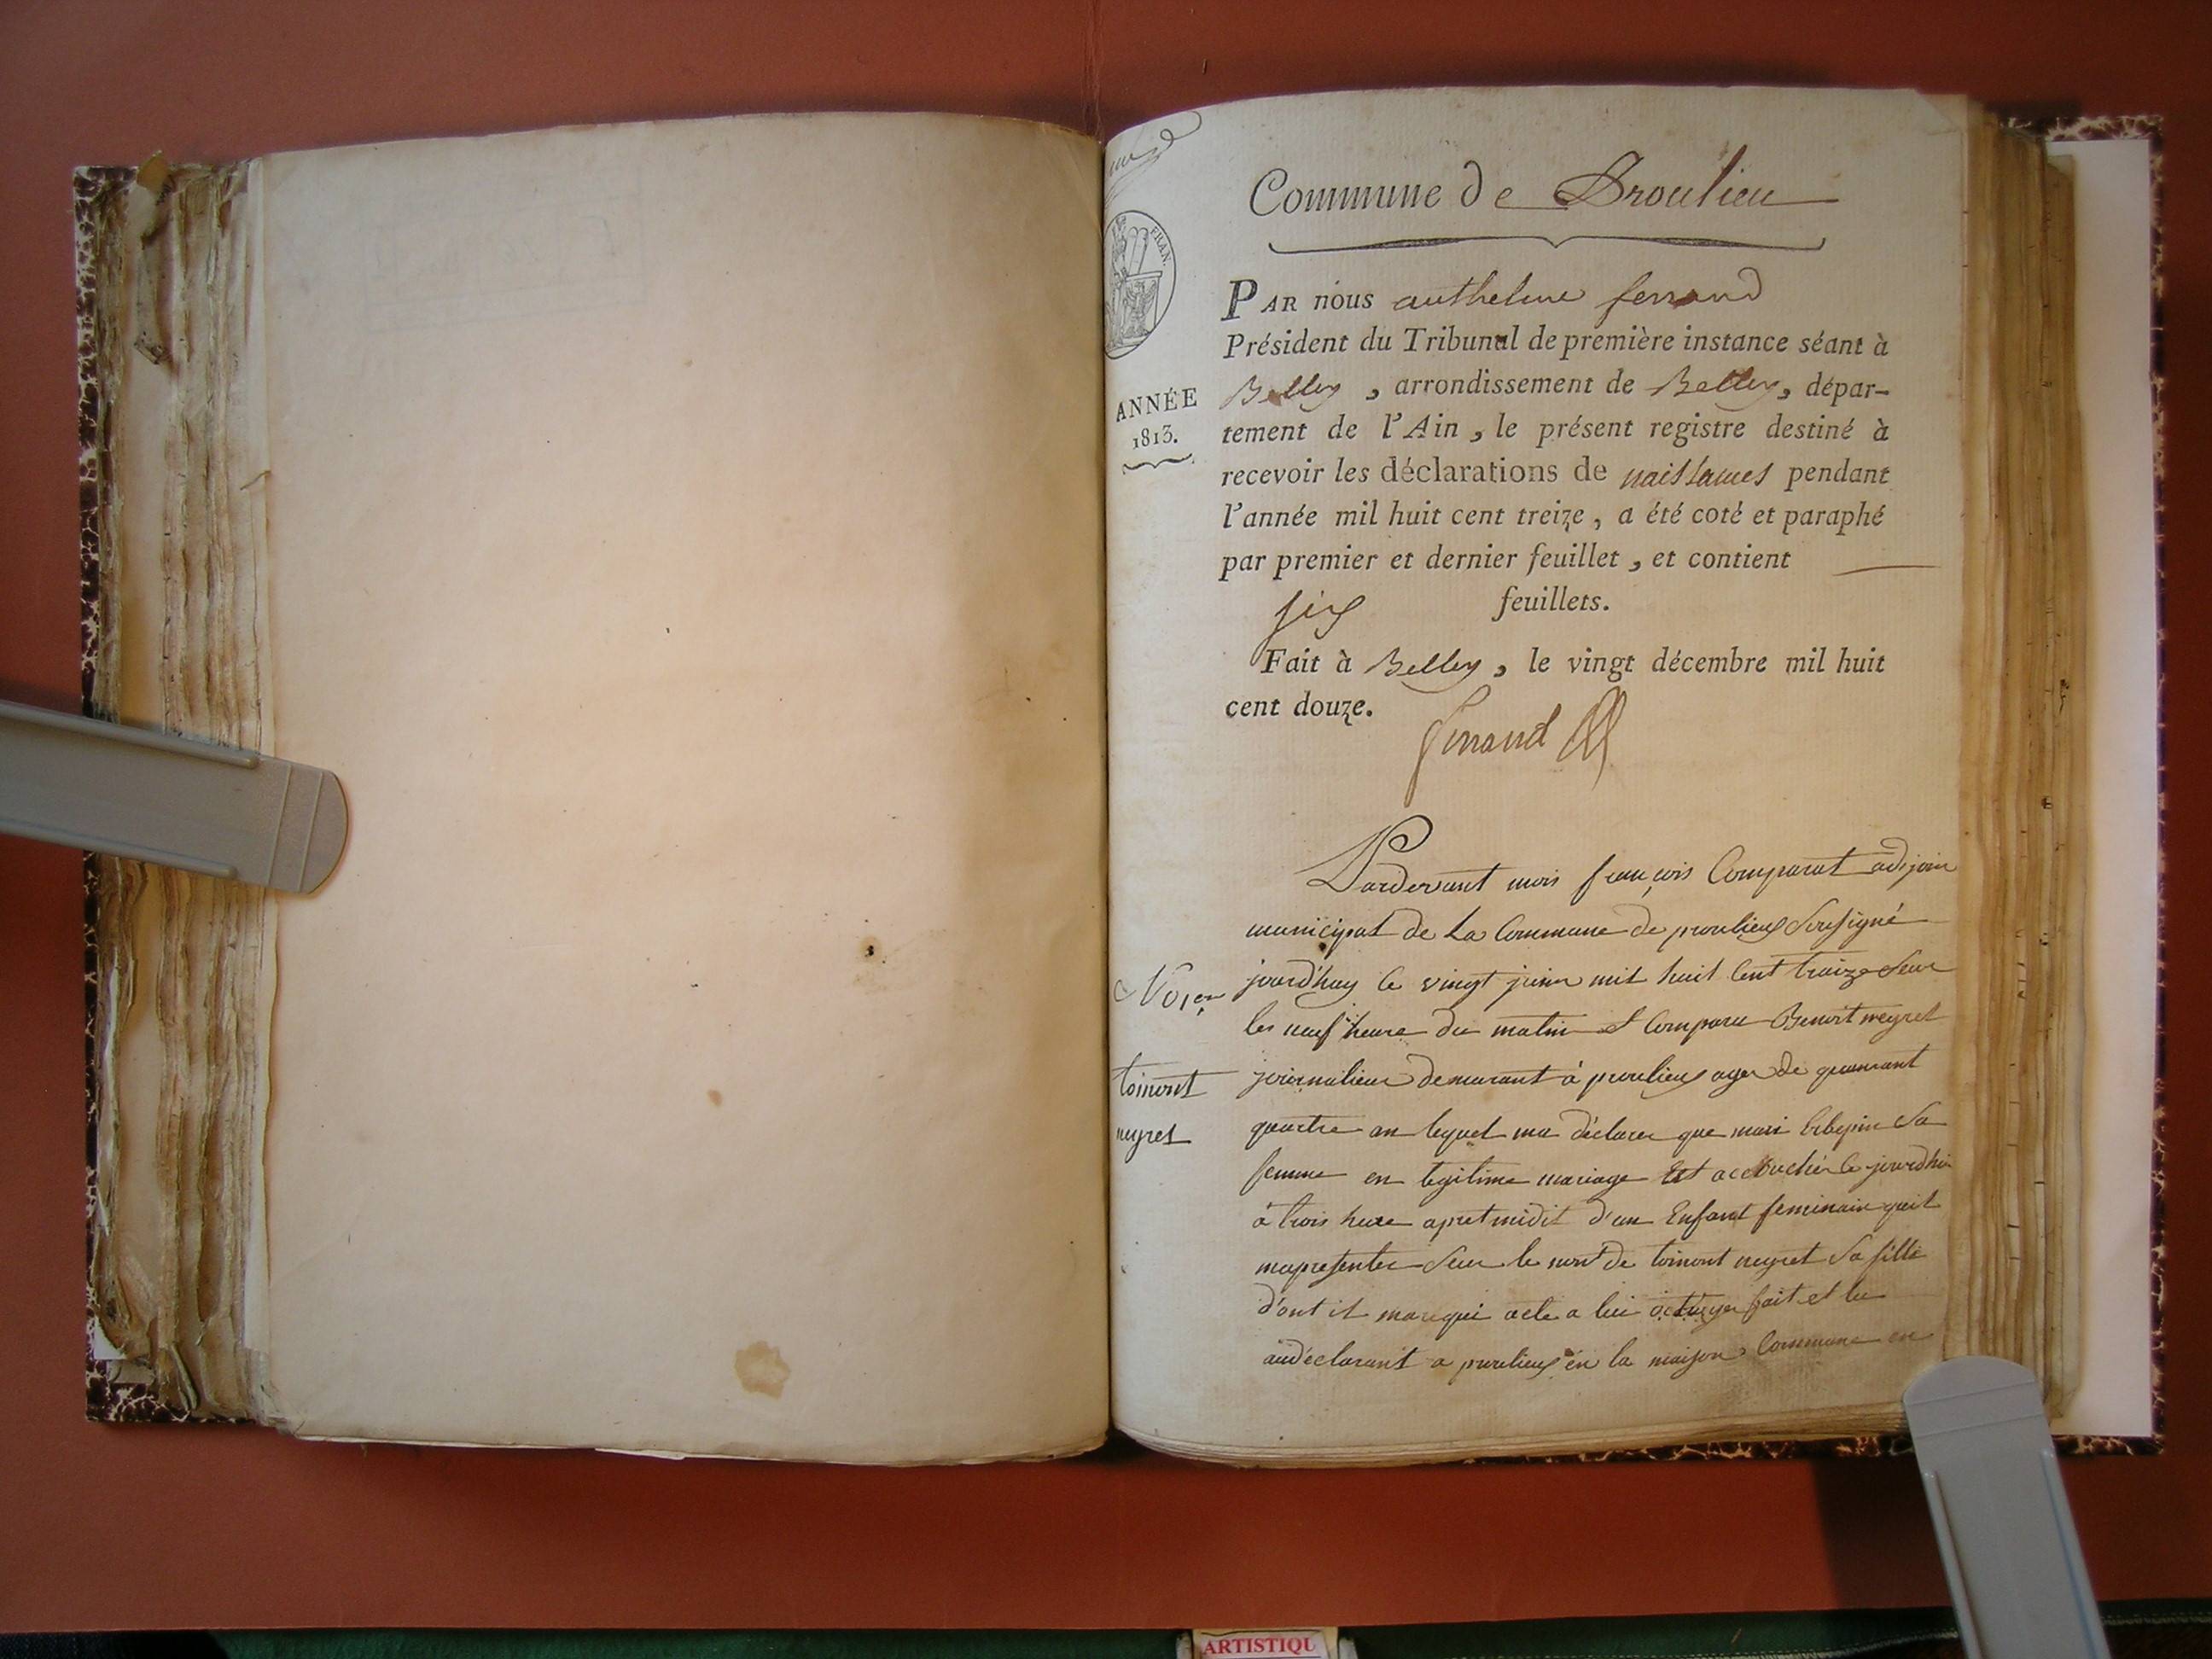 Commune de Proulieu
FRAN.
PAR nous anthelme ferrand
Président du Tribunal de première instance séant à
Belley, arrondissement de Belley, dépar-
tement de l'Ain, le présent registre destiné à
recevoir les déclarations de naissances pendant
l'année mil huit cent treize, a été coté et paraphé
par premier et dernier feuillet, et contient
six feuillets.
Fait à Belley, le vingt décembre mil huit
cent douze.
ferrand
ANNÉE
1813.
Pardevant mois françois Comparat adjoin
municipal de La Commune de proulieux Sousigné
jourd'huy le vingt juin mil huit Cent traize Seur
les neuf heure du matin Et Comparu Benoit neyret
journalieur demeurant à proulieux ager de quarant
quartre an lequel ma déclarer que mari Erbepin Sa
femme en legitime mariage Est accouchée le jourdhui
à trois heure apret midit d'un Enfant feminain quil
mapresenter Seur le nom de toinont neyret Sa fille
d'ont il marequi acte a lui octroyer fait et lu
audéclarant a proulieux en la maison Commune en
toinont
neyret
ARTISTIQU